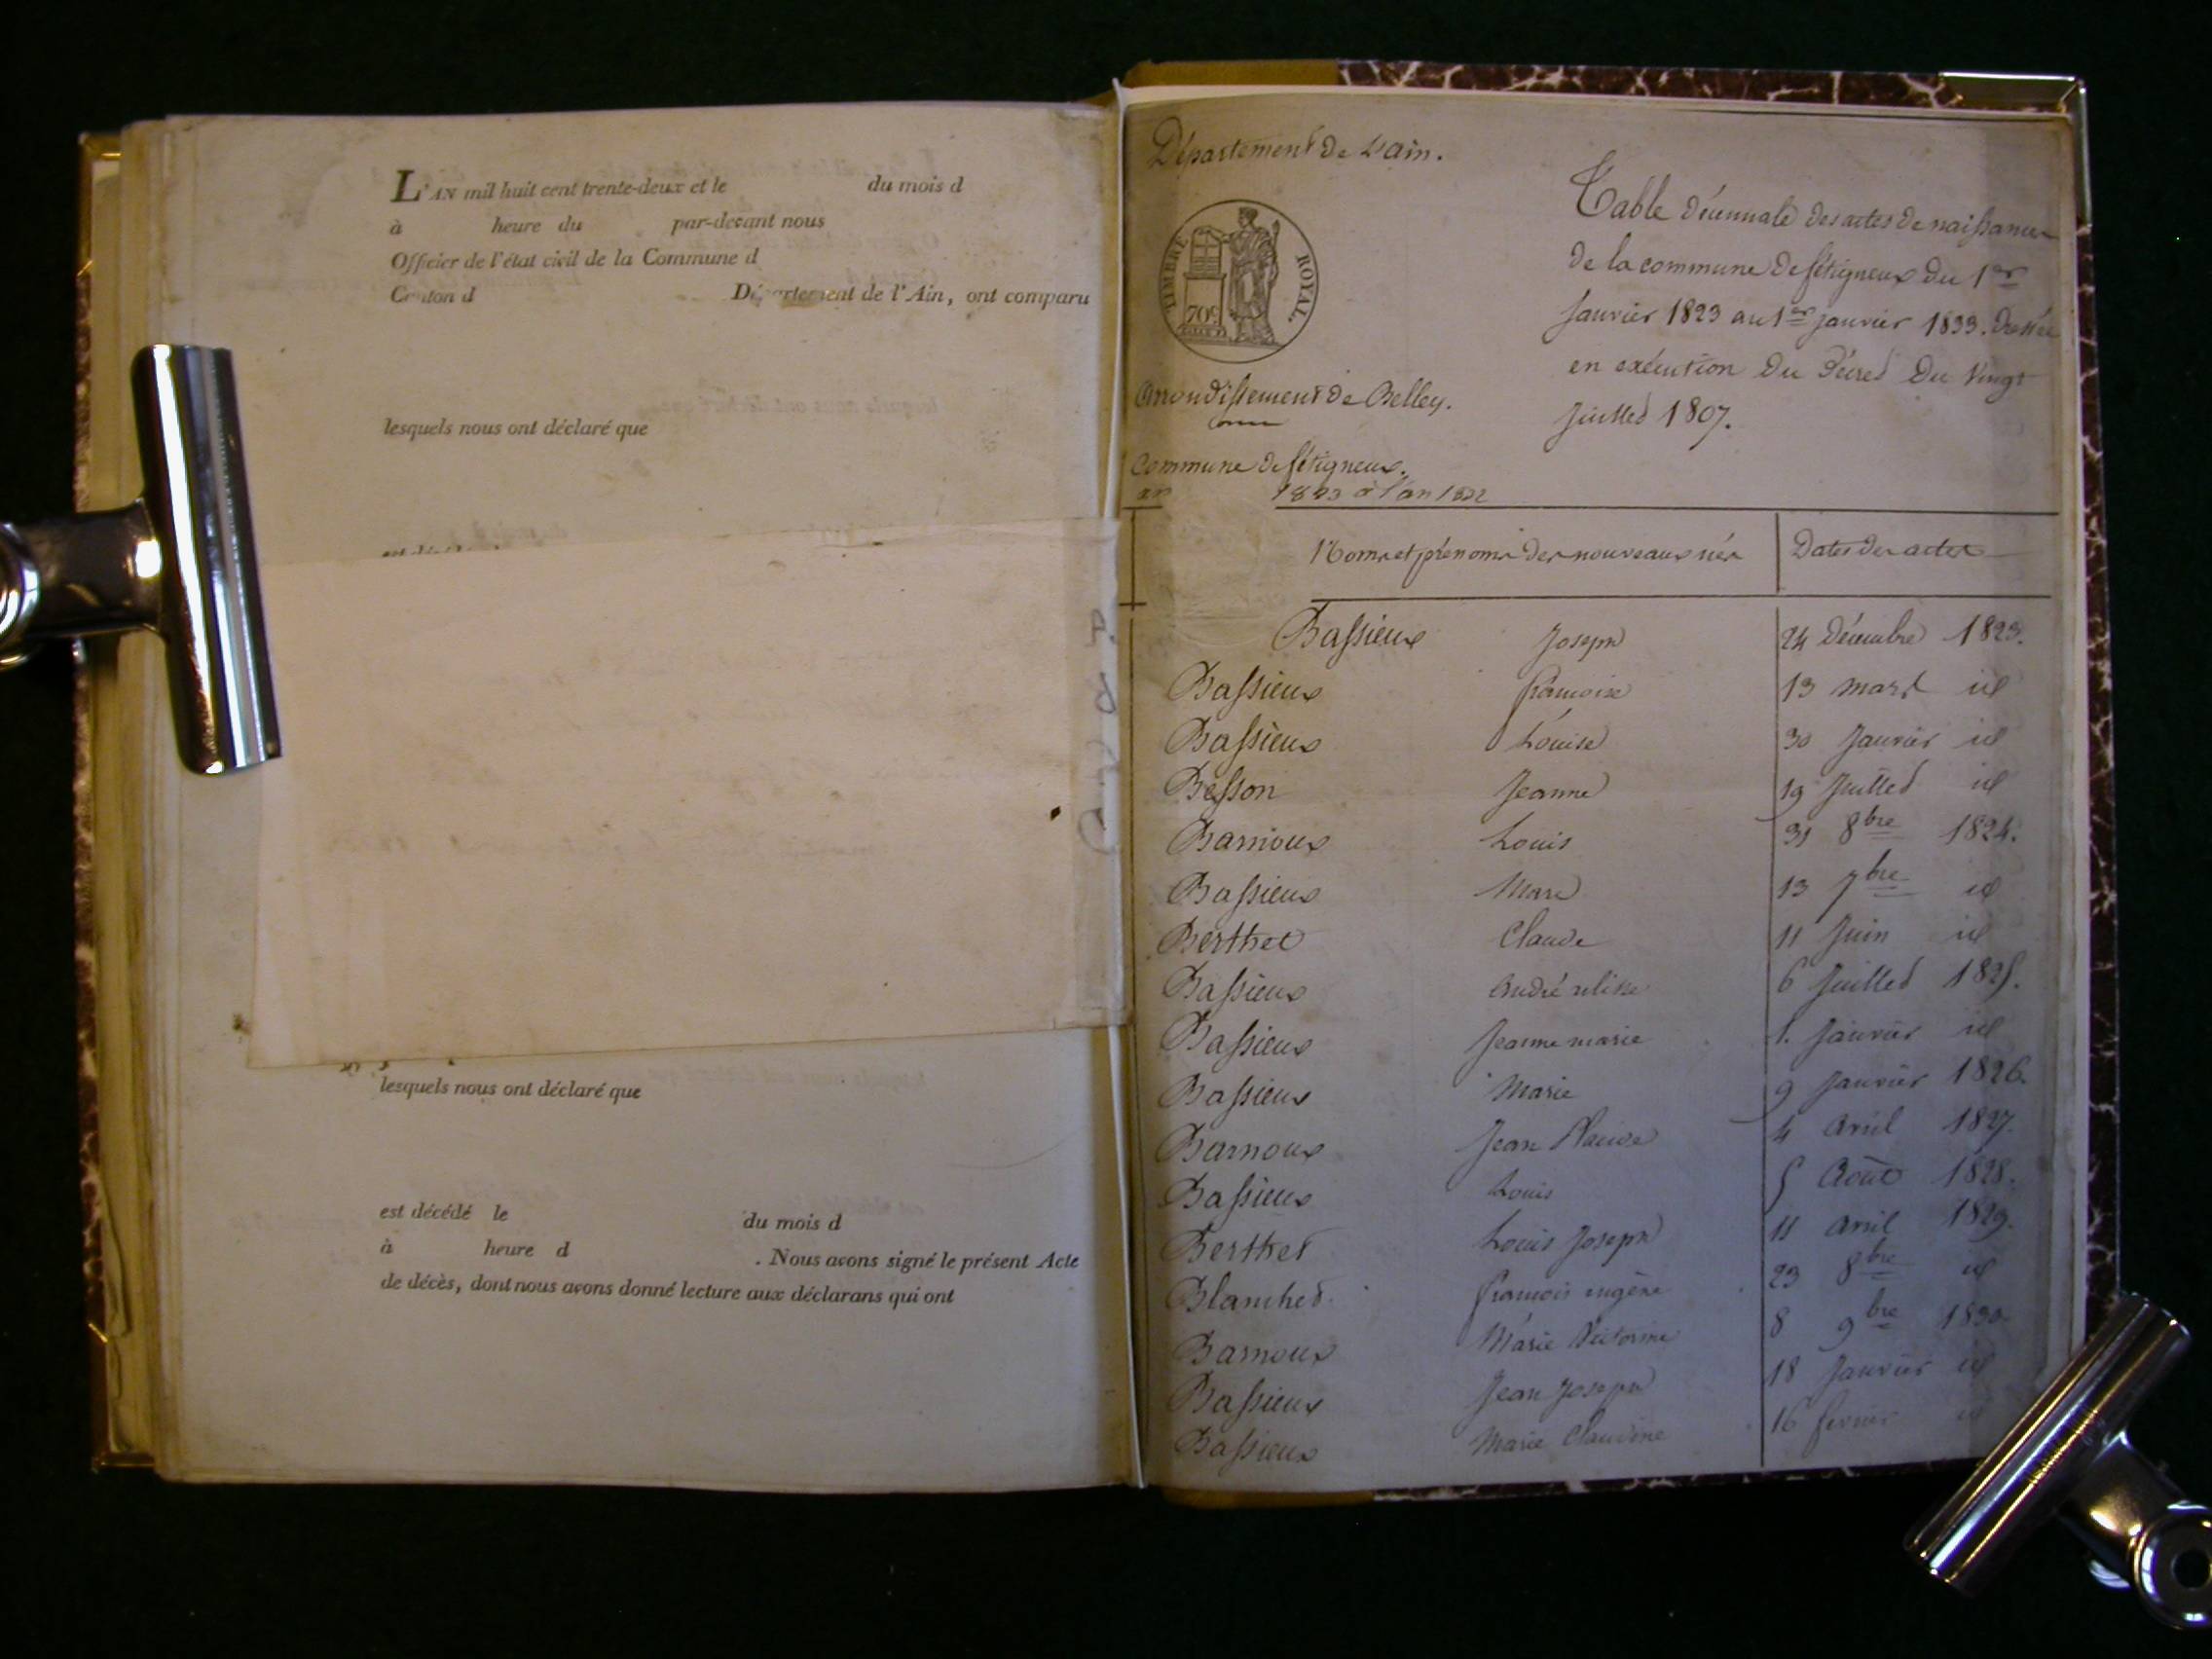 L'AN mil huit cent trente-deux et le du mois d
à heure du par-devant nous
Officier de l'état civil de la Commune d
Canton d Département de l'Ain, ont comparu
lesquels nous ont déclaré que
lesquels nous ont déclaré que
est décédé le du mois d
à heure d . Nous avons signé le présent Acte
de décès, dont nous avons donné lecture aux déclarans qui ont
Département de L'ain.
TIMBRE ROYAL.
70c
Arrondissement de Belley.
Commune de Létigneux.
an 1823 à l'an 1832
Table décennale des actes de naissances
de la commune de Létigneux du 1er
Janvier 1823 au 1er janvier 1833. Dressée
en exécution du Décret du Vingt
Juillet 1807.
Noms et prénoms des nouveaux nés Dates des actes
Bassieux Joseph 24 Décembre 1823.
Bassieux françoise 13 mars id
Bassieux Louise 30 Janvier id
Besson Jeanne 19 Juillet id
Barnoux Louis 31 8bre 1824.
Bassieux Marc 13 7bre id
Berthet Claude 11 Juin id
Bassieux André ulisse 6 Juillet 1825.
Bassieux Jeanne marie 1. Janvier id
Bassieux Marie 9 Janvier 1826.
Barnoux Jean Placide 4 Avril 1827.
Bassieux Louis 5 Août 1828.
Berthet Louis Joseph 11 avril 1829.
Blanchet françois eugène 23 8bre id
Barnoux Marie Victorine 8 9bre 1830.
Bassieux Jean Joseph 18 Janvier id
Bassieux Marie Claudine 16 fevrier id